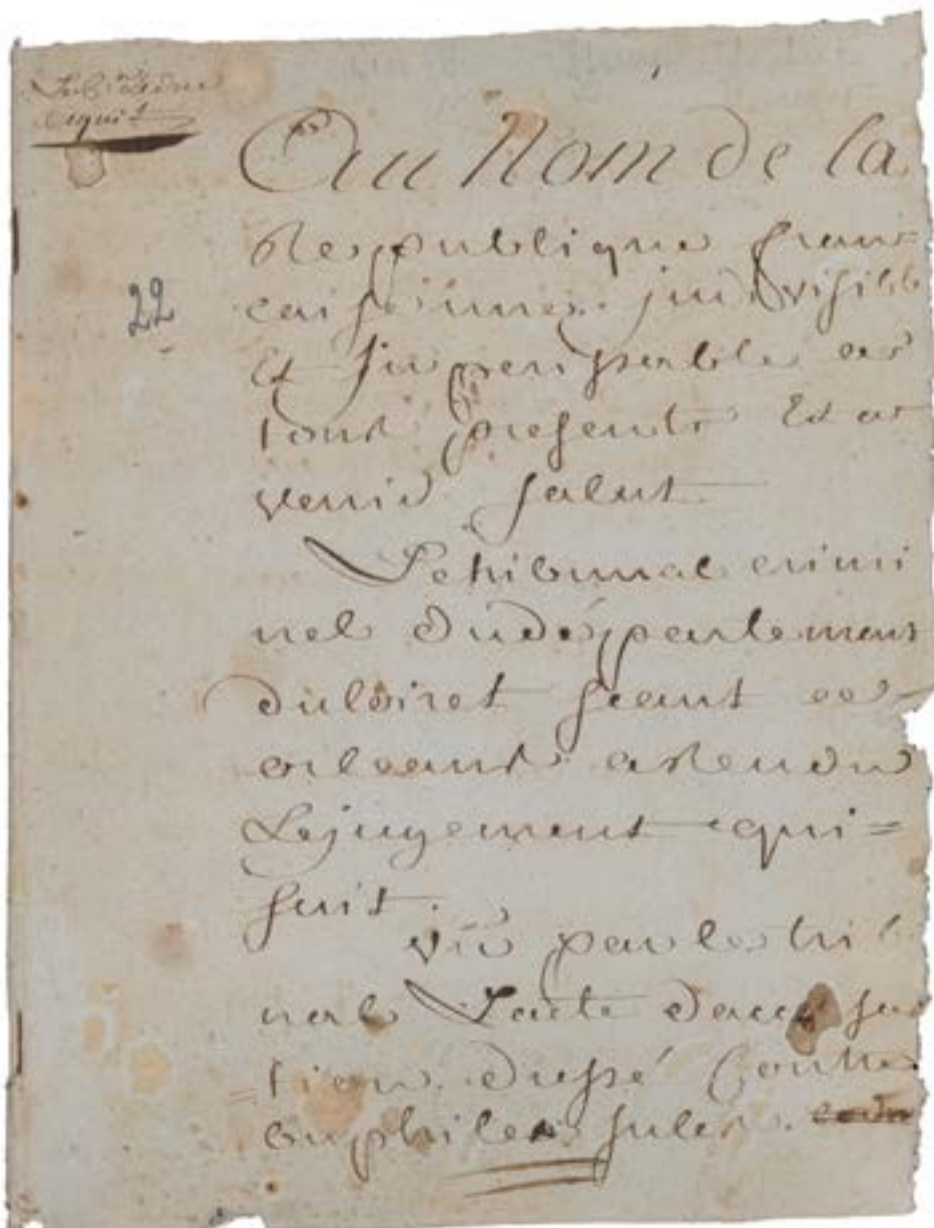 22
Au Nom de la
Republique fran=
caise une. indivisible
Et Imperissable a
tous presents Et a
venir salut.
Le tribunal crimi
nel du département
du loiret séant a
orleans a rendu
Le jugement qui=
suit.
Vu par le trib
nal L'acte daccusa
=tion. dressé Contre